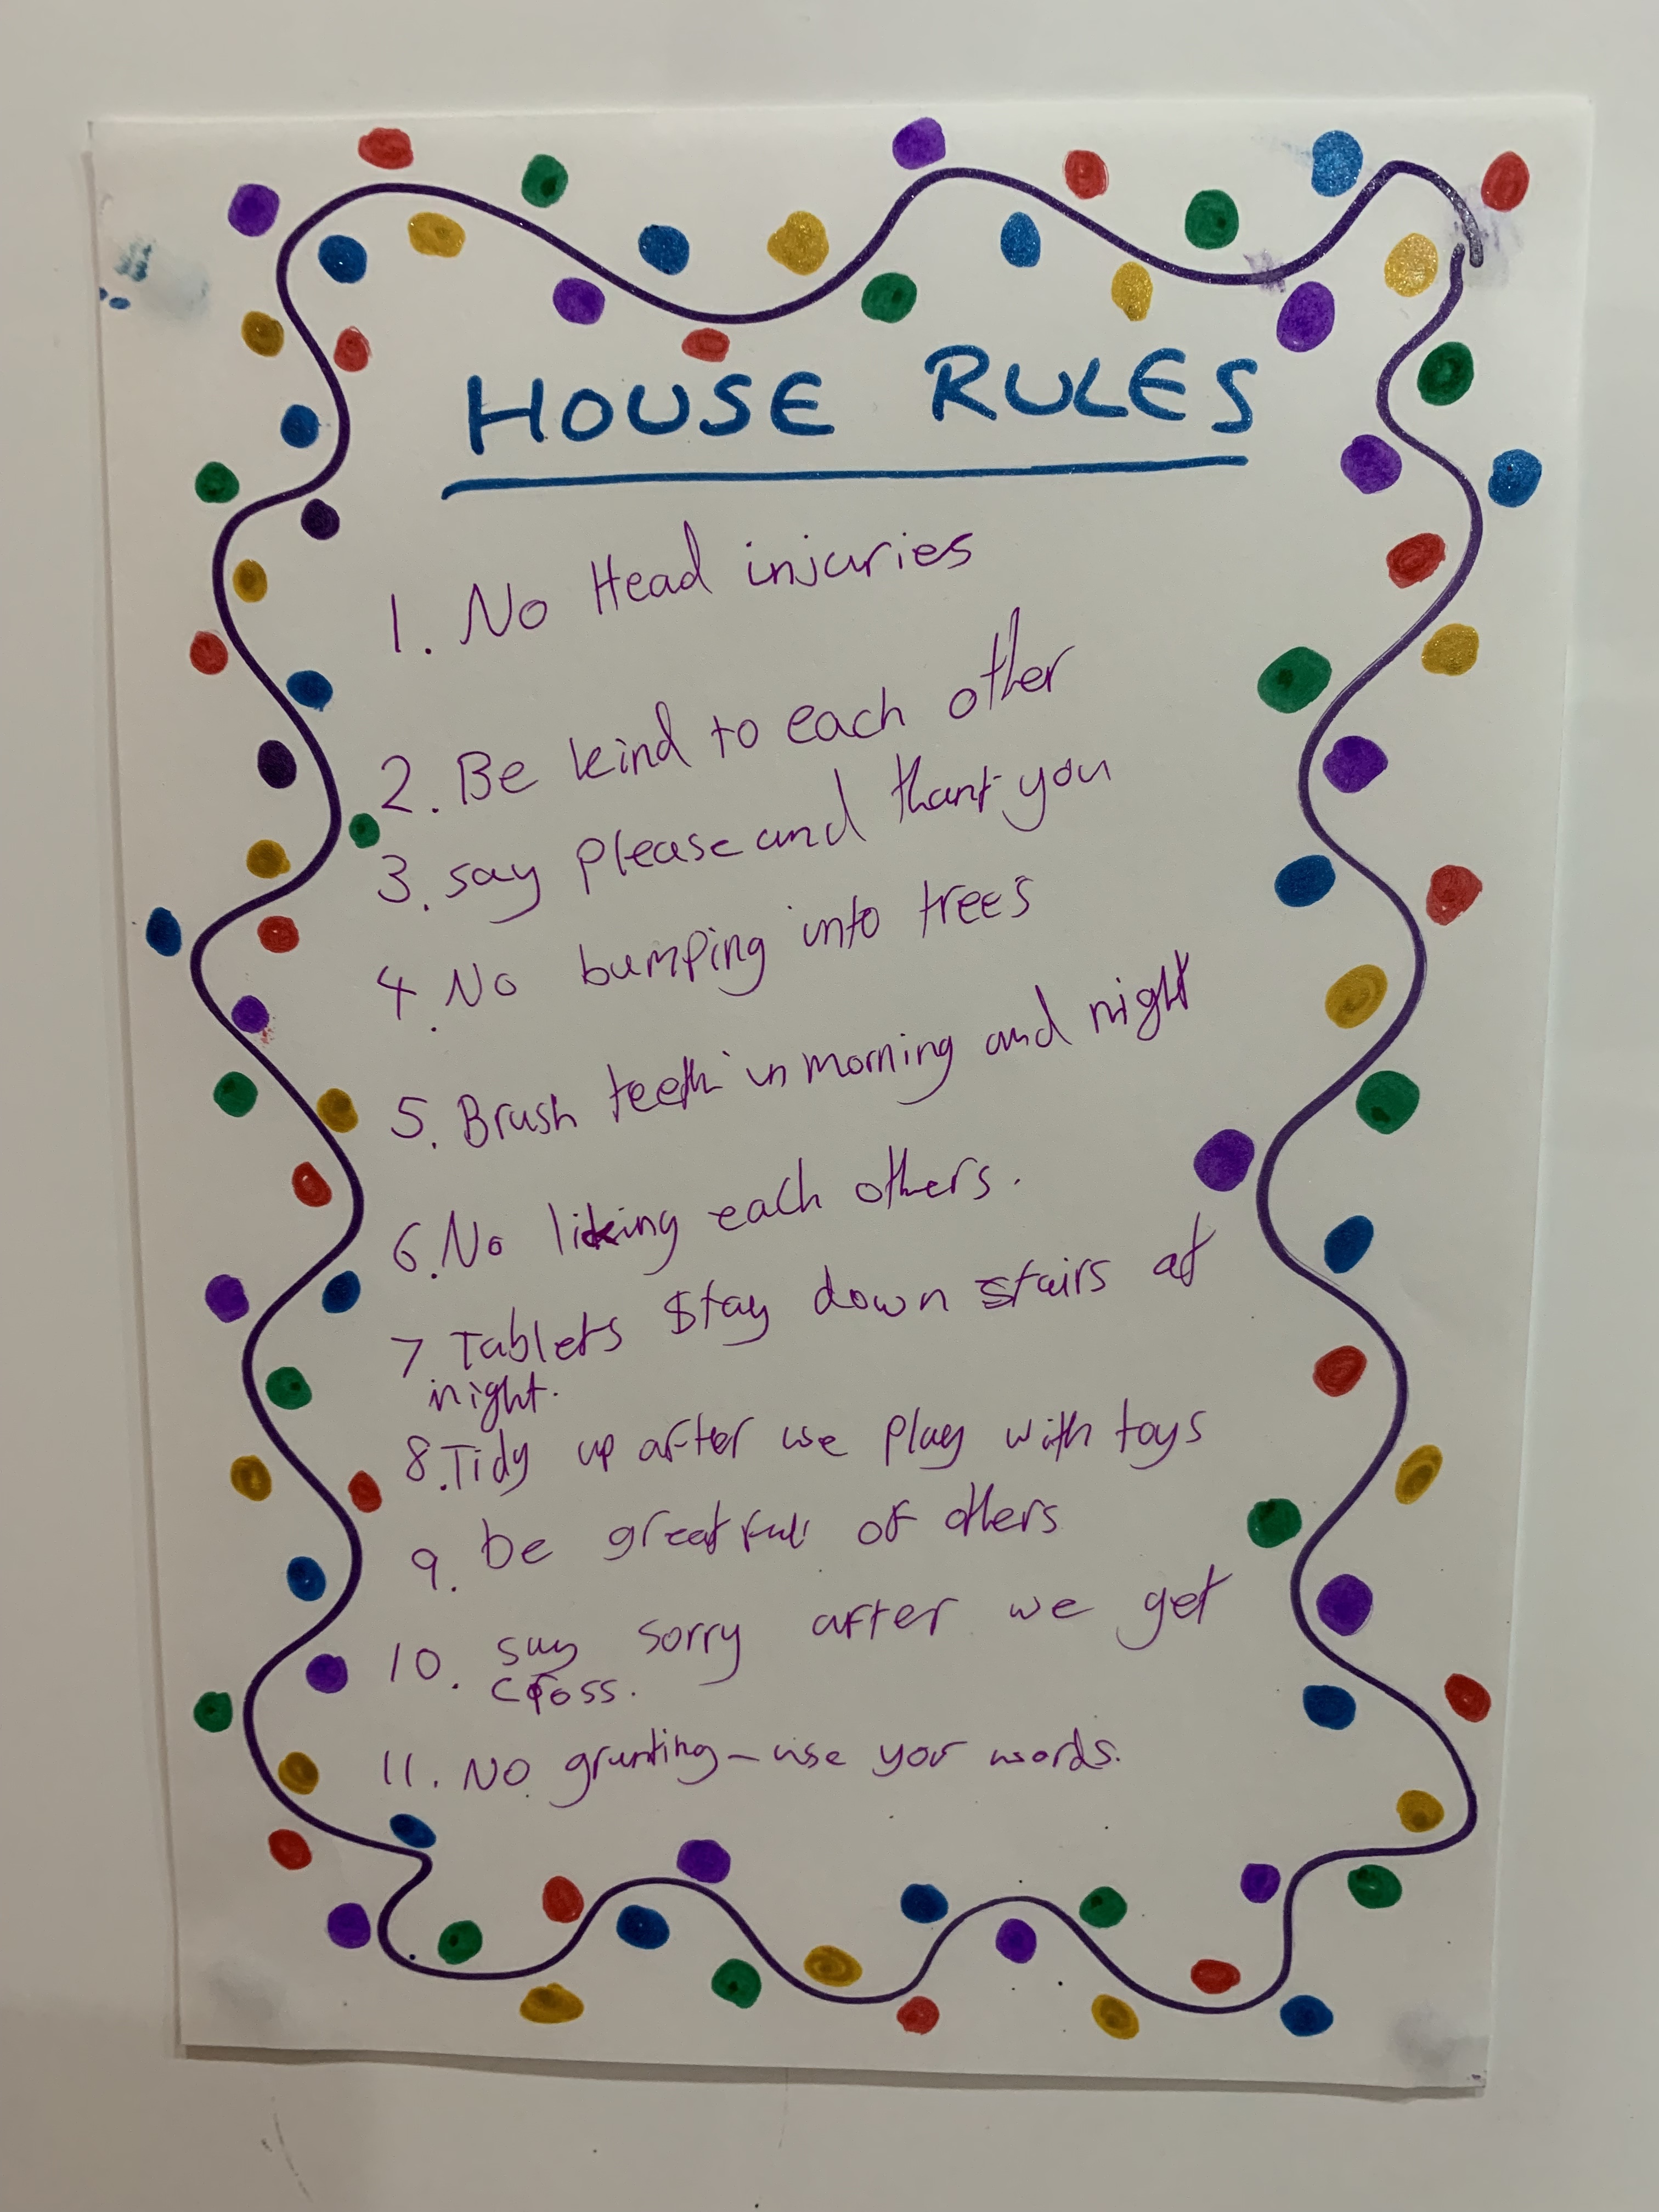 HOUSE RULES
1. No Head injuries
2. Be kind to each other
3. say please and thank you
4. No bumping into trees
5. Brush teeth in morning and night
6. No licking each others.
7 Tablets stay down stairs at
night.
8. Tidy up after we play with toys
9. be greatfull of others
10. say sorry after we get
cross.
11. No grunting - use your words.